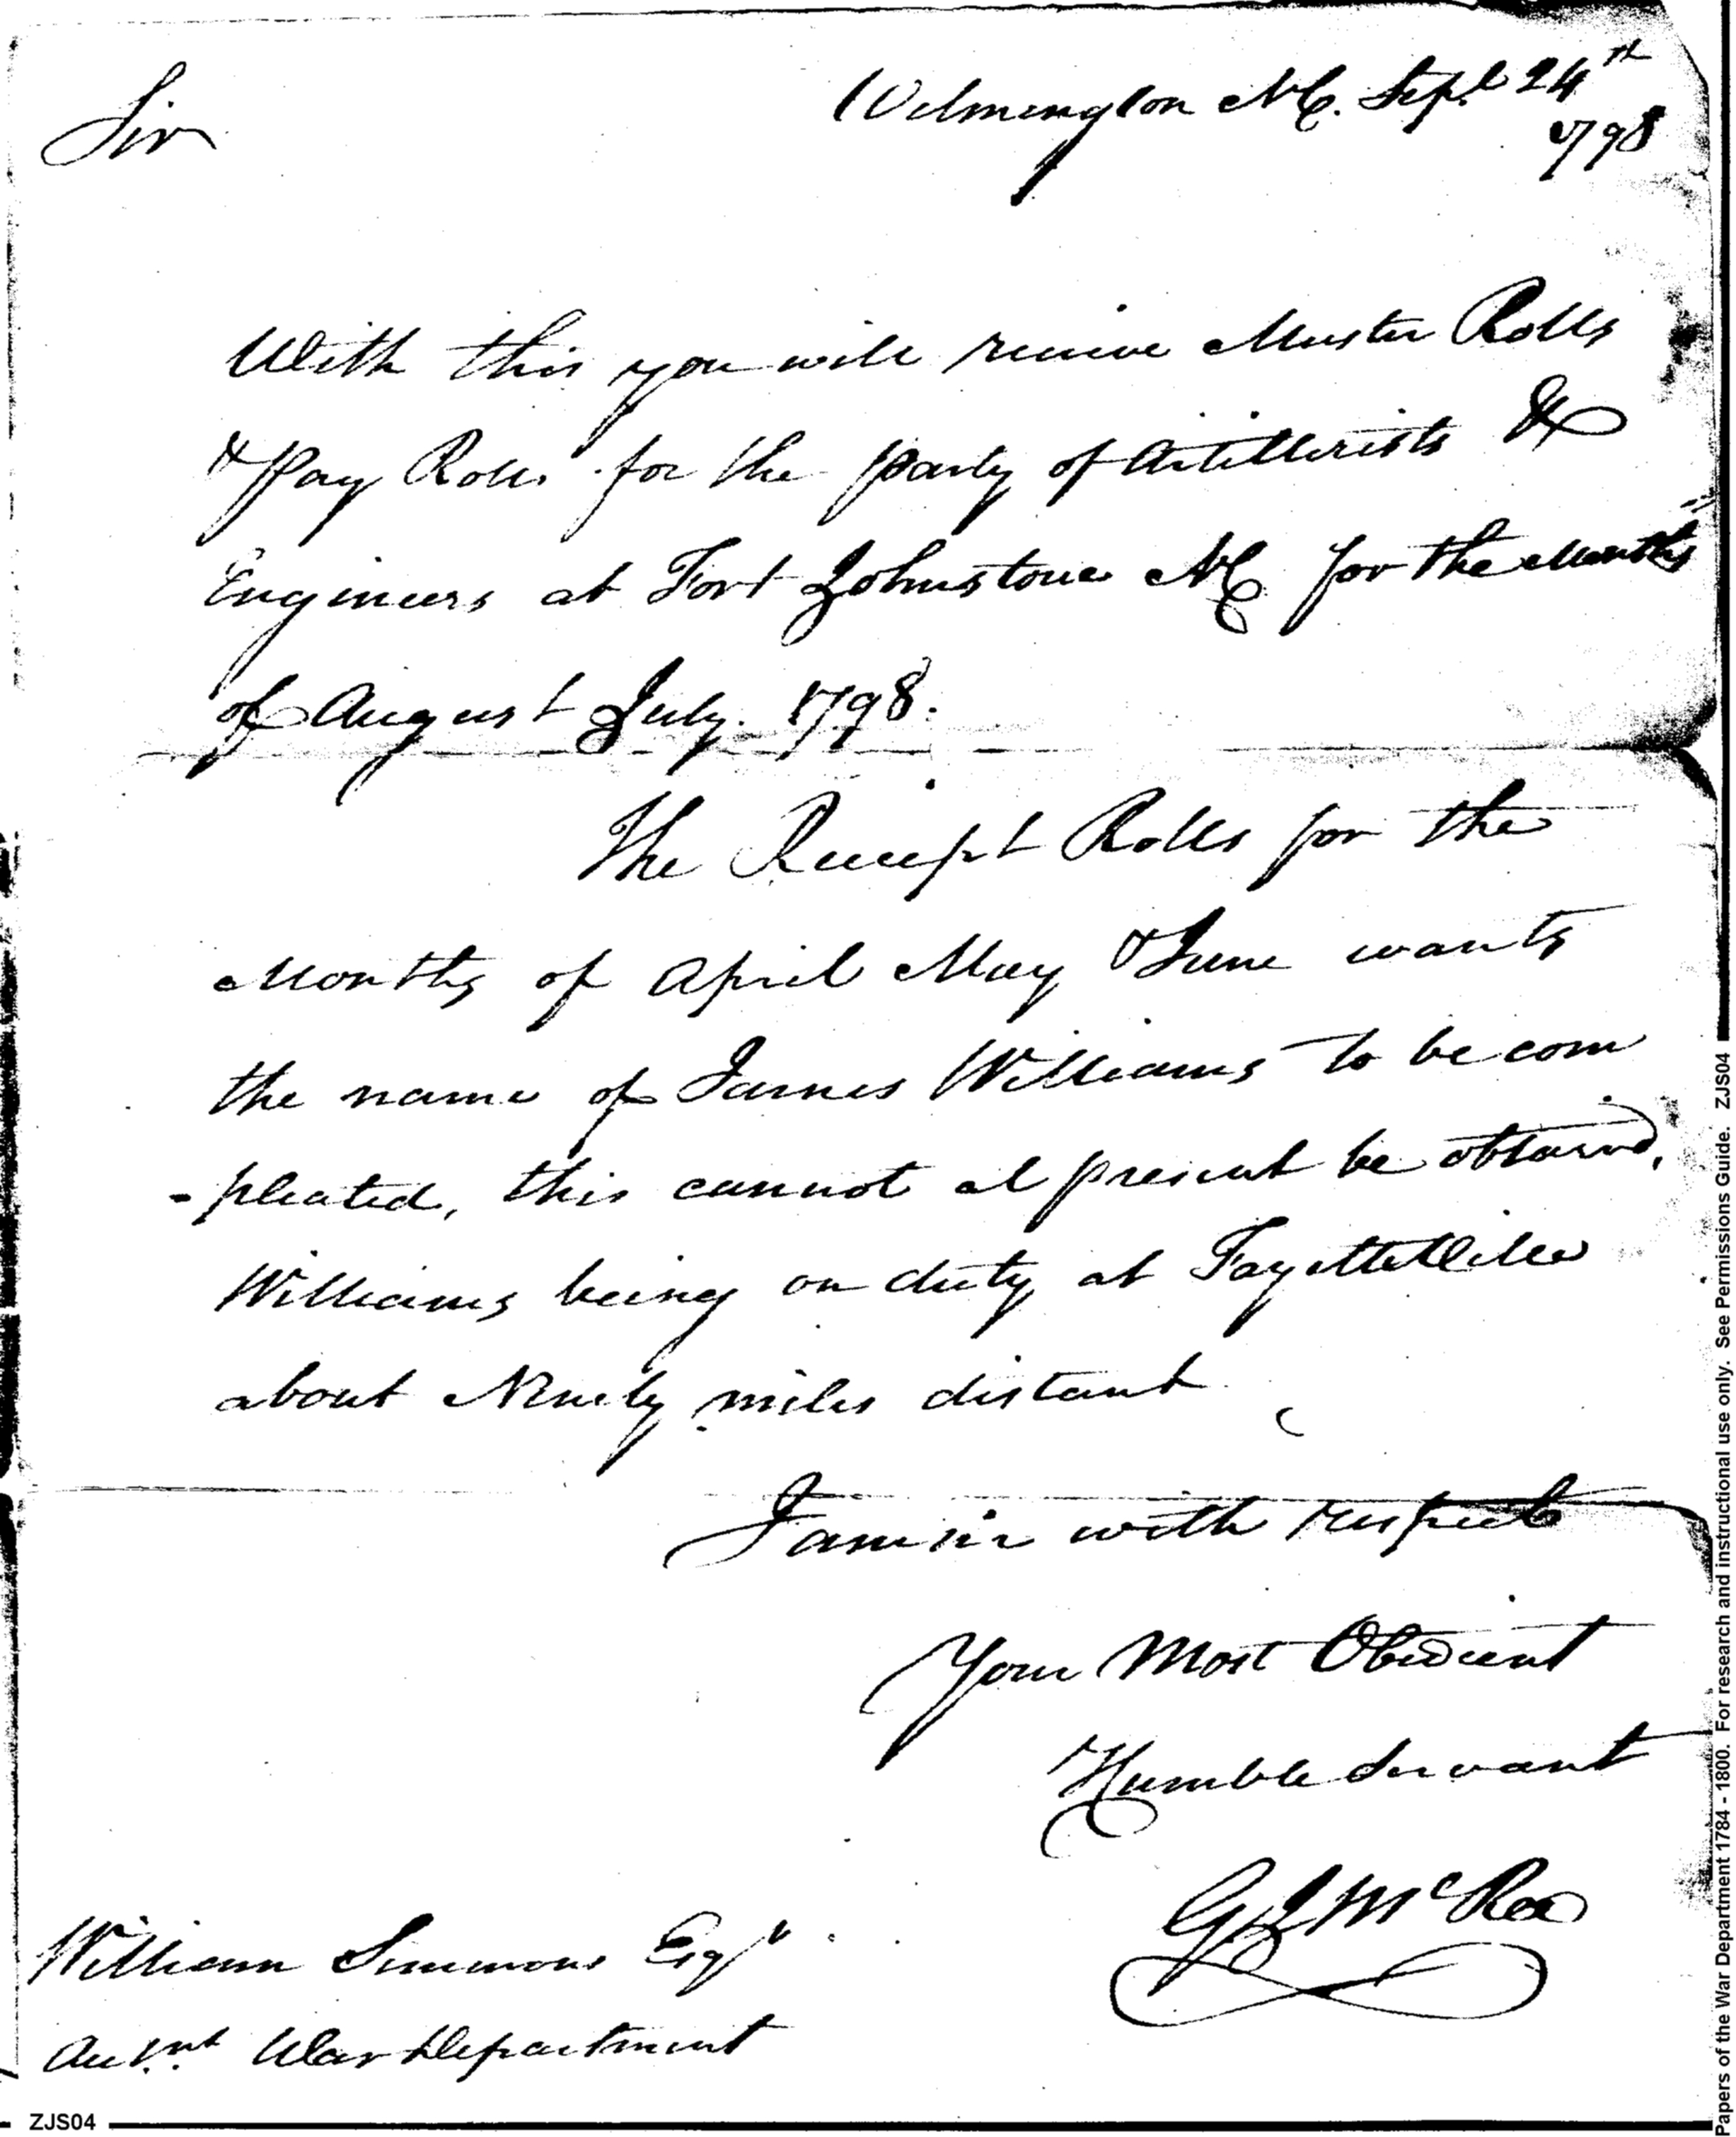 Wilmington NC. Sept 24th
1798
Sir
With this you will receive Muster Rolls
& Pay Rolls for the party of Artillerists &
Engineers at Fort Johnstone NC for the Months
of August July. 1798.
The Receipt Rolls for the
Months of April May & June wants
the name of James Williams to be com
-pleated, this cannot at present be obtained,
Williams being on duty at Fayetteville
about Ninety miles distant
I am sir with respect
Your Most Obedient
Humble Servant
G J McRee
William Simmons Esqr
Accnt War Department
ZJS04
Papers of the War Department 1784 - 1800. For research and instructional use only. See Permissions Guide. ZJS04